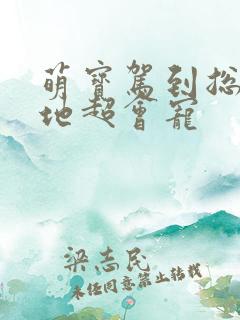 萌寶駕到总
地超會寵
梁志民
未經同意禁止转载